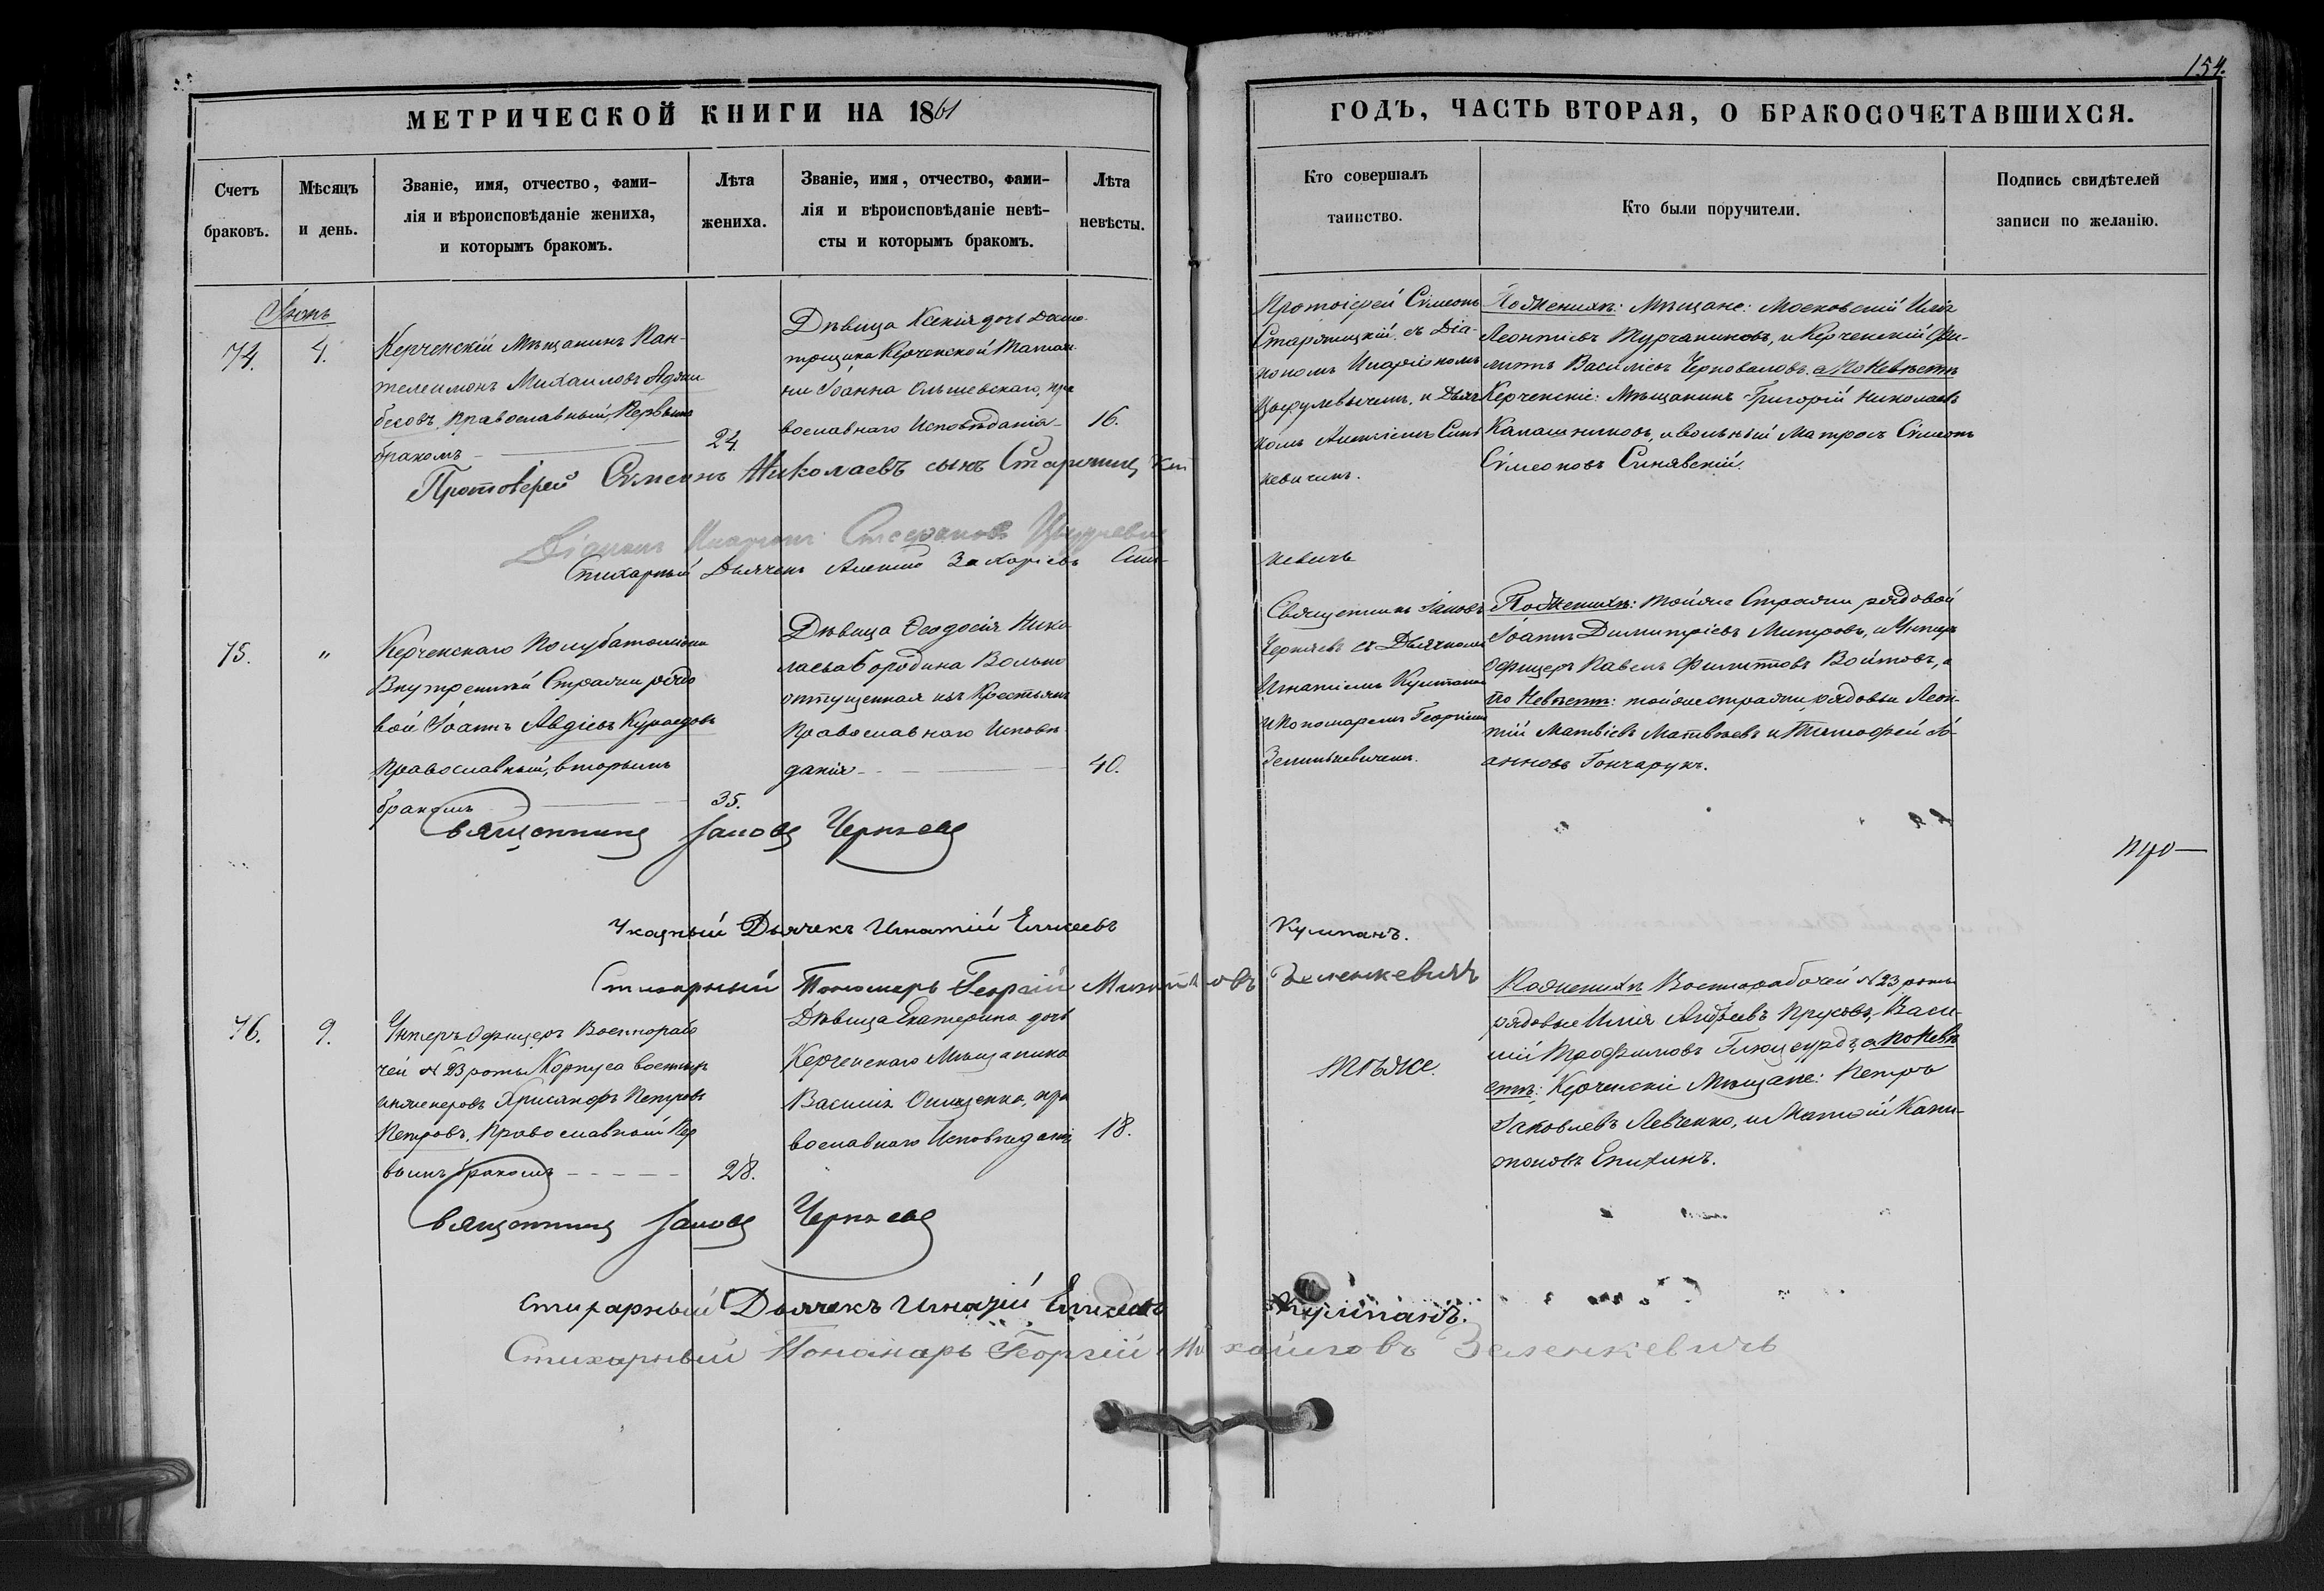 154.
МЕТРИЧЕСКОЙ КНИГИ НА 1861
ГОДЪ, ЧАСТЬ ВТОРАЯ, О БРАКОСОЧЕТАВШИХСЯ.
Счетъ
браковъ.
Мѣсяцъ
и день.
Званіе, имя, отчество, фами-
лія и вѣроисповѣданіе жениха,
и которымъ бракомъ.
Лѣта
жениха.
Званіе, имя, отчество, фами-
лія и вѣроисповѣданіе невѣ-
сты и которымъ бракомъ.
Лѣта
невѣсты.
Кто совершалъ
таинство.
Кто были поручители.
Подпись свидѣтелей
записи по желанію.
Іюнь
74.
4.
Керченскій Мѣщанинъ Пан-
телеимонъ Михаиловъ
Православный, Первымъ
бракомъ
24.
Дѣвица Ксенія дочь
Керченской
ни Іоанна Ольшевскаго, пра
вославнаго Исповѣданія
16.
Протоіерей Сѵмеонъ
Старчицкій, съ Діа-
кономъ Иларіономъ
и Дьяч
комъ Алексіемъ Сень
кевичемъ.
По Женихѣ: Мѣщане: Московскій Илія
Леонтіевъ Турчаниновъ, и Керченскій Фи-
липъ Василіевъ Черноваловъ. а По Невѣстѣ
Керченскіе: Мѣщанинъ Григорій Николаевъ
Калашниковъ, и вольный Матросъ Сѵмеонъ
Сѵмеоновъ Синявскій.
Протоіерей Сѵмеонъ Николаевъ сынъ Старчицкій
Діаконъ Иларіонъ Стефановъ
Стихарный Дьячекъ Алексій Захаріевъ Сень-
кевичъ
75.
"
Керченскаго Полубаталіона
Внутренней Стражи рядо
вой Іоаннъ Авдіевъ Кураедовъ
Православный, вторымъ
бракомъ
35.
Дѣвица Ѳеодосія Нико
лаева Бородина Вольно
отпущенная изъ Крестьянъ
Православнаго Исповѣ
данія
40.
Священникъ Іаковъ
Черняевъ съ Дьячкомъ
Игнатіемъ Куппаномъ
и Пономаремъ Георгіемъ
Зеленкевичемъ.
По Женихѣ: тойже Стражи рядовой
Іоаннъ Димитріевъ Митровъ, и Унтеръ
Офицеръ Павелъ Филипповъ Войтовъ, а
По Невѣстѣ: тойже стражи, рядовые Леон-
тій Матвіевъ Матвѣевъ и Тимофей Іо-
анновъ Гончарукъ.
Священникъ Іаковъ Черняевъ
Указный Дьячекъ Игнатій Елисеевъ
Куппанъ.
Стихарный Пономарь Георгій Михайловъ Зеленкевичъ
76.
9.
Унтеръ Офицеръ Военнорабо
чей № 23 роты Корпуса военныхъ
инженеровъ Хрисанфъ Петровъ
Петровъ, Православный Пер
вымъ бракомъ
28.
Дѣвица Екатерина дочь
Керченскаго Мѣщанина
Василія Онищенка, пра
вославнаго Исповѣданія
18.
Тѣже.
По Женихѣ Военнорабочей № 23 роты
рядовые Илія Андреевъ Прусовъ, Васи-
лій Трофимовъ а По Невѣ
стѣ: Керченскіе Мѣщане: Петръ
Іаковлевъ Левченко, и Матѳій Капи-
тоновъ Епихинъ.
Священникъ Іаковъ Черняевъ
Стихарный Дьячекъ Игнатій Елисеевъ
Куппанъ.
Стихарный Пономарь Георгій Михайловъ Зеленкевичъ